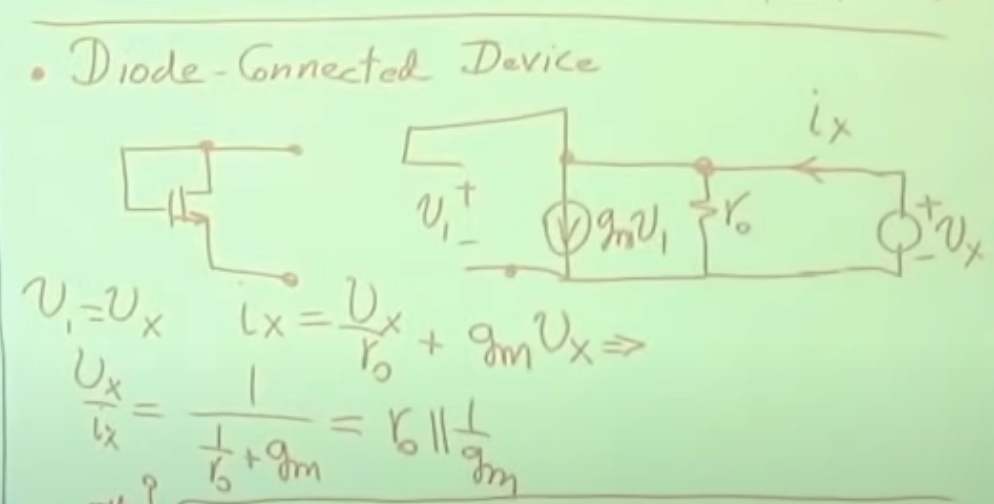 • Diode-Connected Device
iₓ
v₁ + − gₘv₁ r₀ + − vₓ
v₁ = vₓ iₓ = vₓ/r₀ + gₘvₓ ⇒
vₓ/iₓ = 1/(1/r₀ + gₘ) = r₀ || 1/gₘ
?